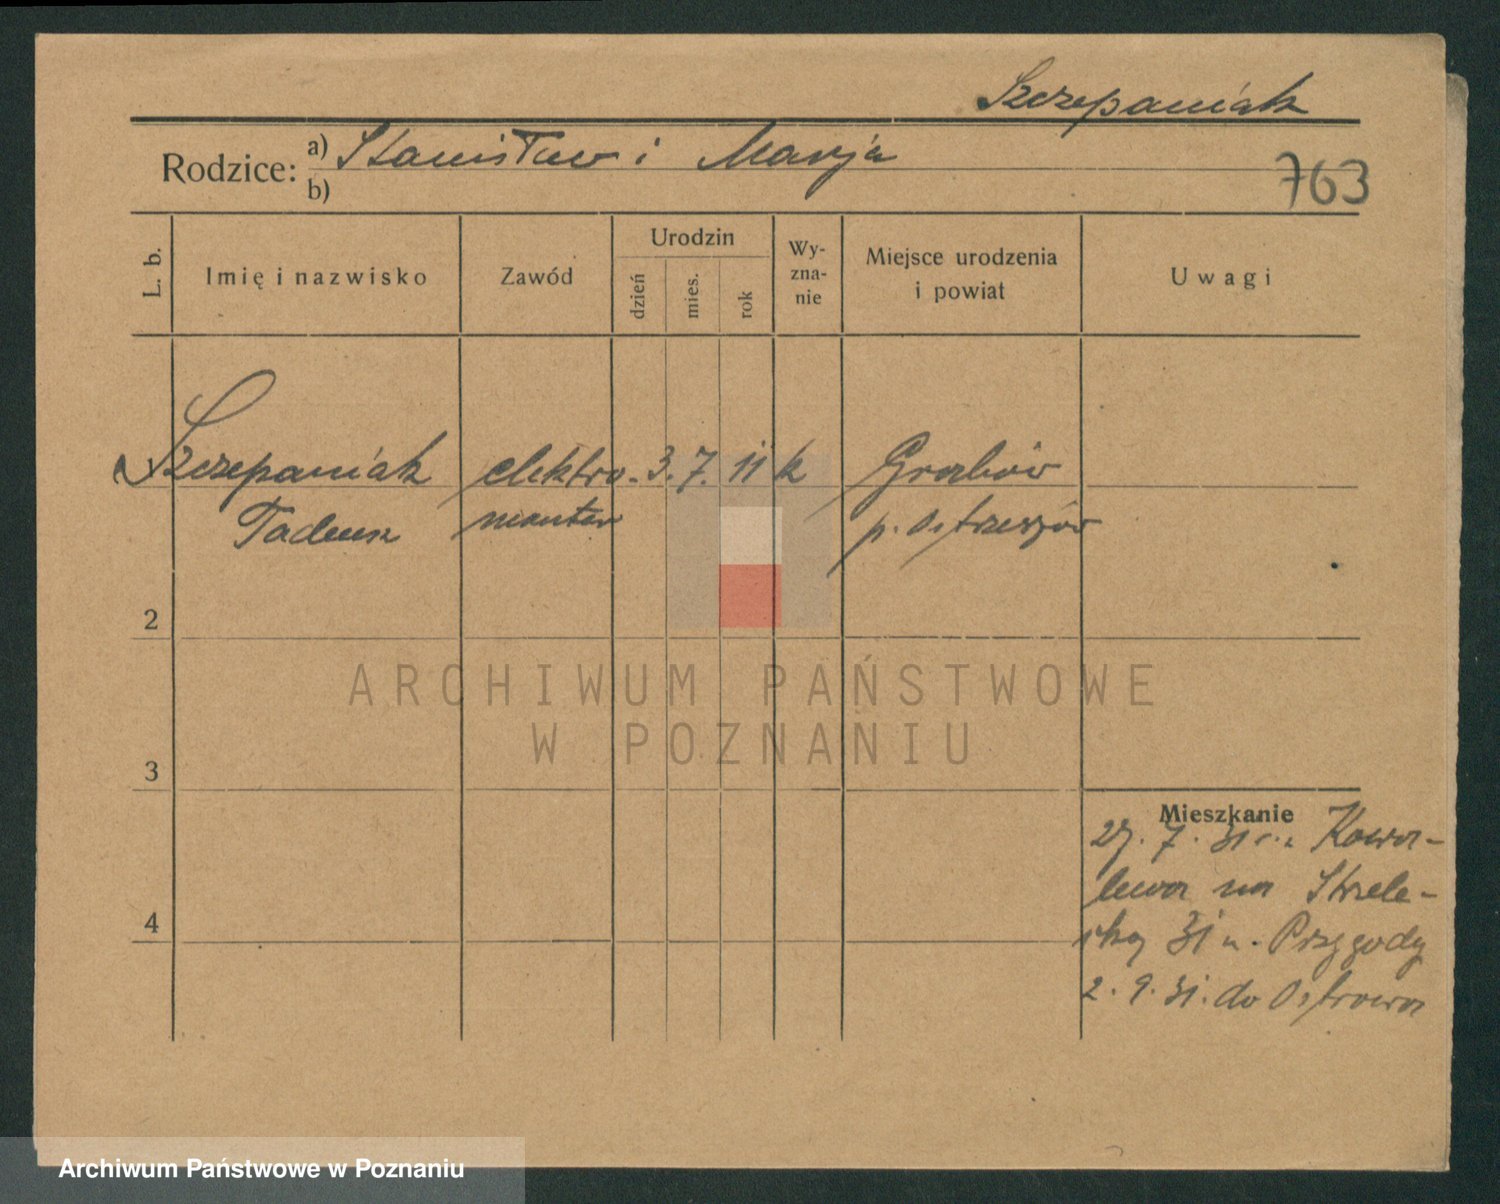 Szczepaniak
Rodzice: a) Stanisław i Marja
b)
763
L. b.
Imię i nazwisko
Zawód
Urodzin
dzień
mies.
rok
Wy-
zna-
nie
Miejsce urodzenia
i powiat
Uwagi
Szczepaniak elektro- 3. 7. 11 k Grabów
Tadeusz monter p. Ostrzeszów
2
3
4
ARCHIWUM PAŃSTWOWE
W POZNANIU
Mieszkanie
29. 7. 31 Kowa-
lewa na Strzele-
cką 31 u. Przygody
2. 9. 31. do Ostrowa
Archiwum Państwowe w Poznaniu